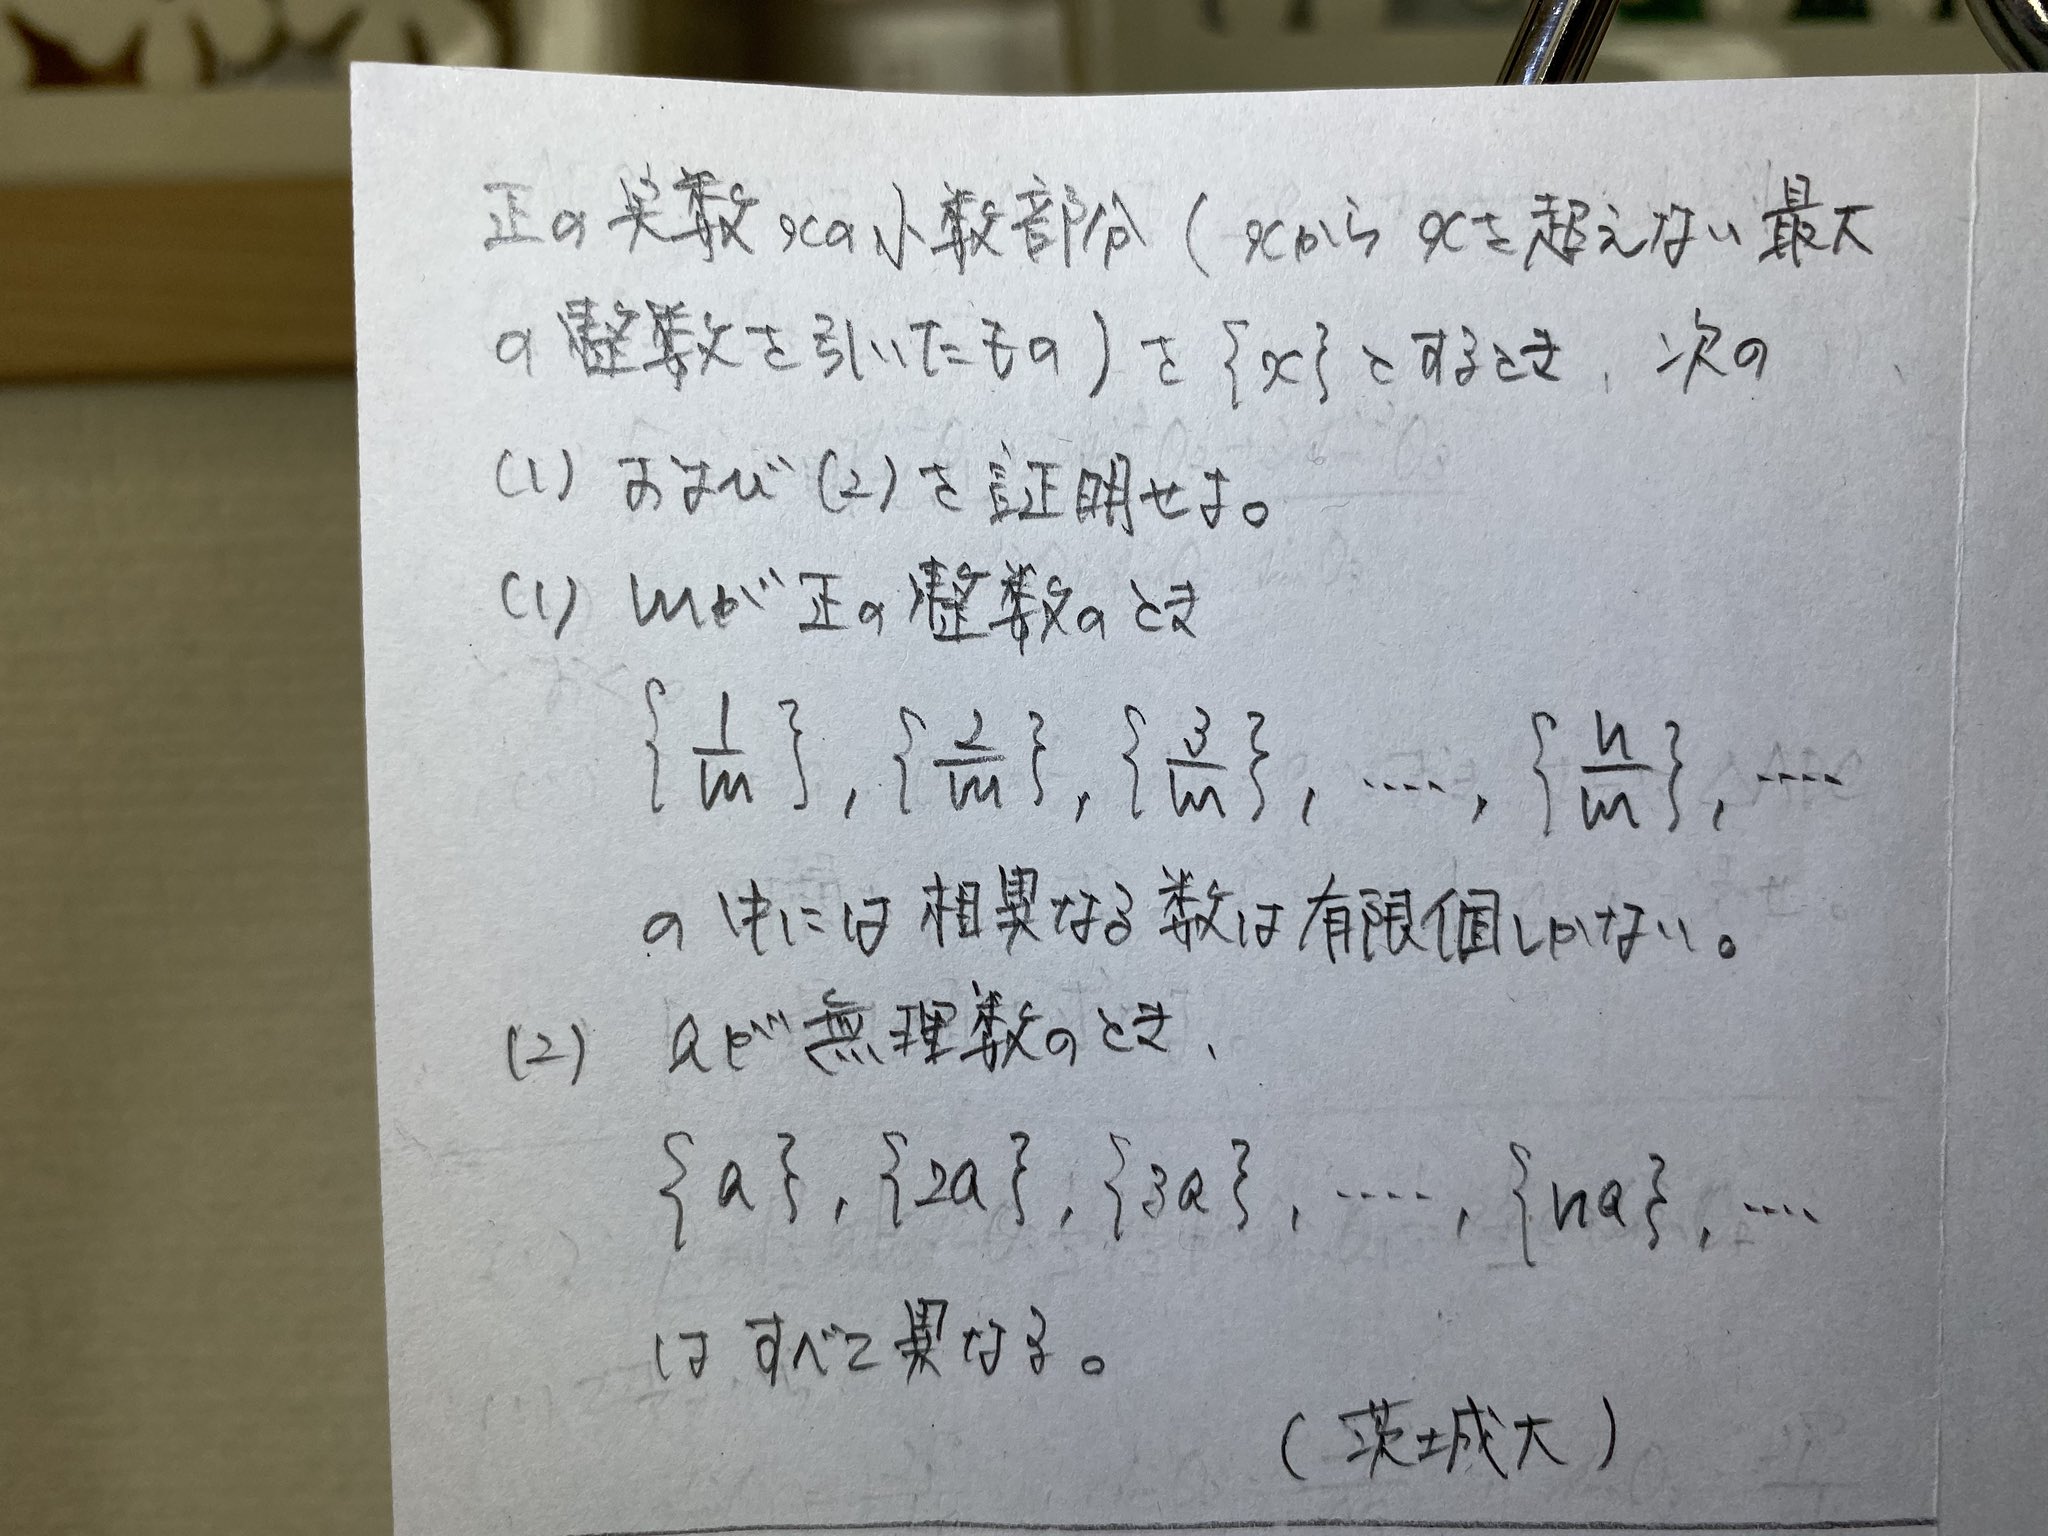 正の実数xの小数部分(xからxを超えない最大
の整数を引いたもの)を{x}とするとき、次の
(1)および(2)を証明せよ。
(1) mが正の整数のとき
{1/m}, {2/m}, {3/m}, ‥‥, {n/m}, ‥‥
の中には相異なる数は有限個しかない。
(2) aが無理数のとき、
{a}, {2a}, {3a}, ‥‥, {na}, ‥‥
はすべて異なる。
(茨城大)